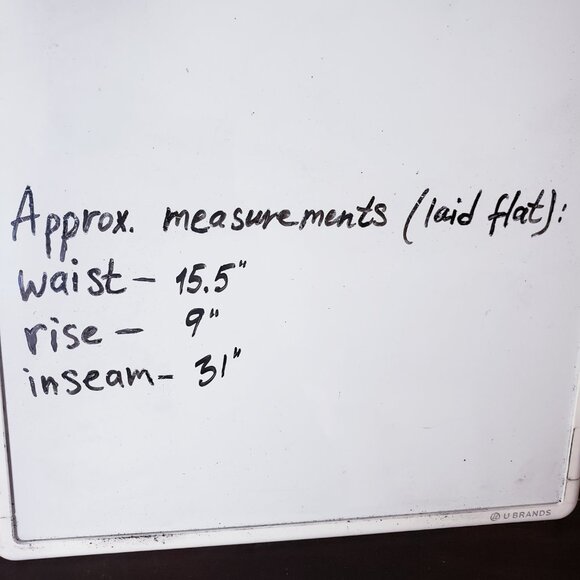 Approx. measurements (laid flat):
waist - 15.5"
rise - 9"
inseam - 31"
U BRANDS